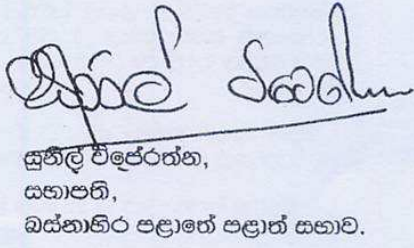 සුනිල් විජේරත්න,
සභාපති,
බස්නාහිර පළාතේ පළාත් සභාව.